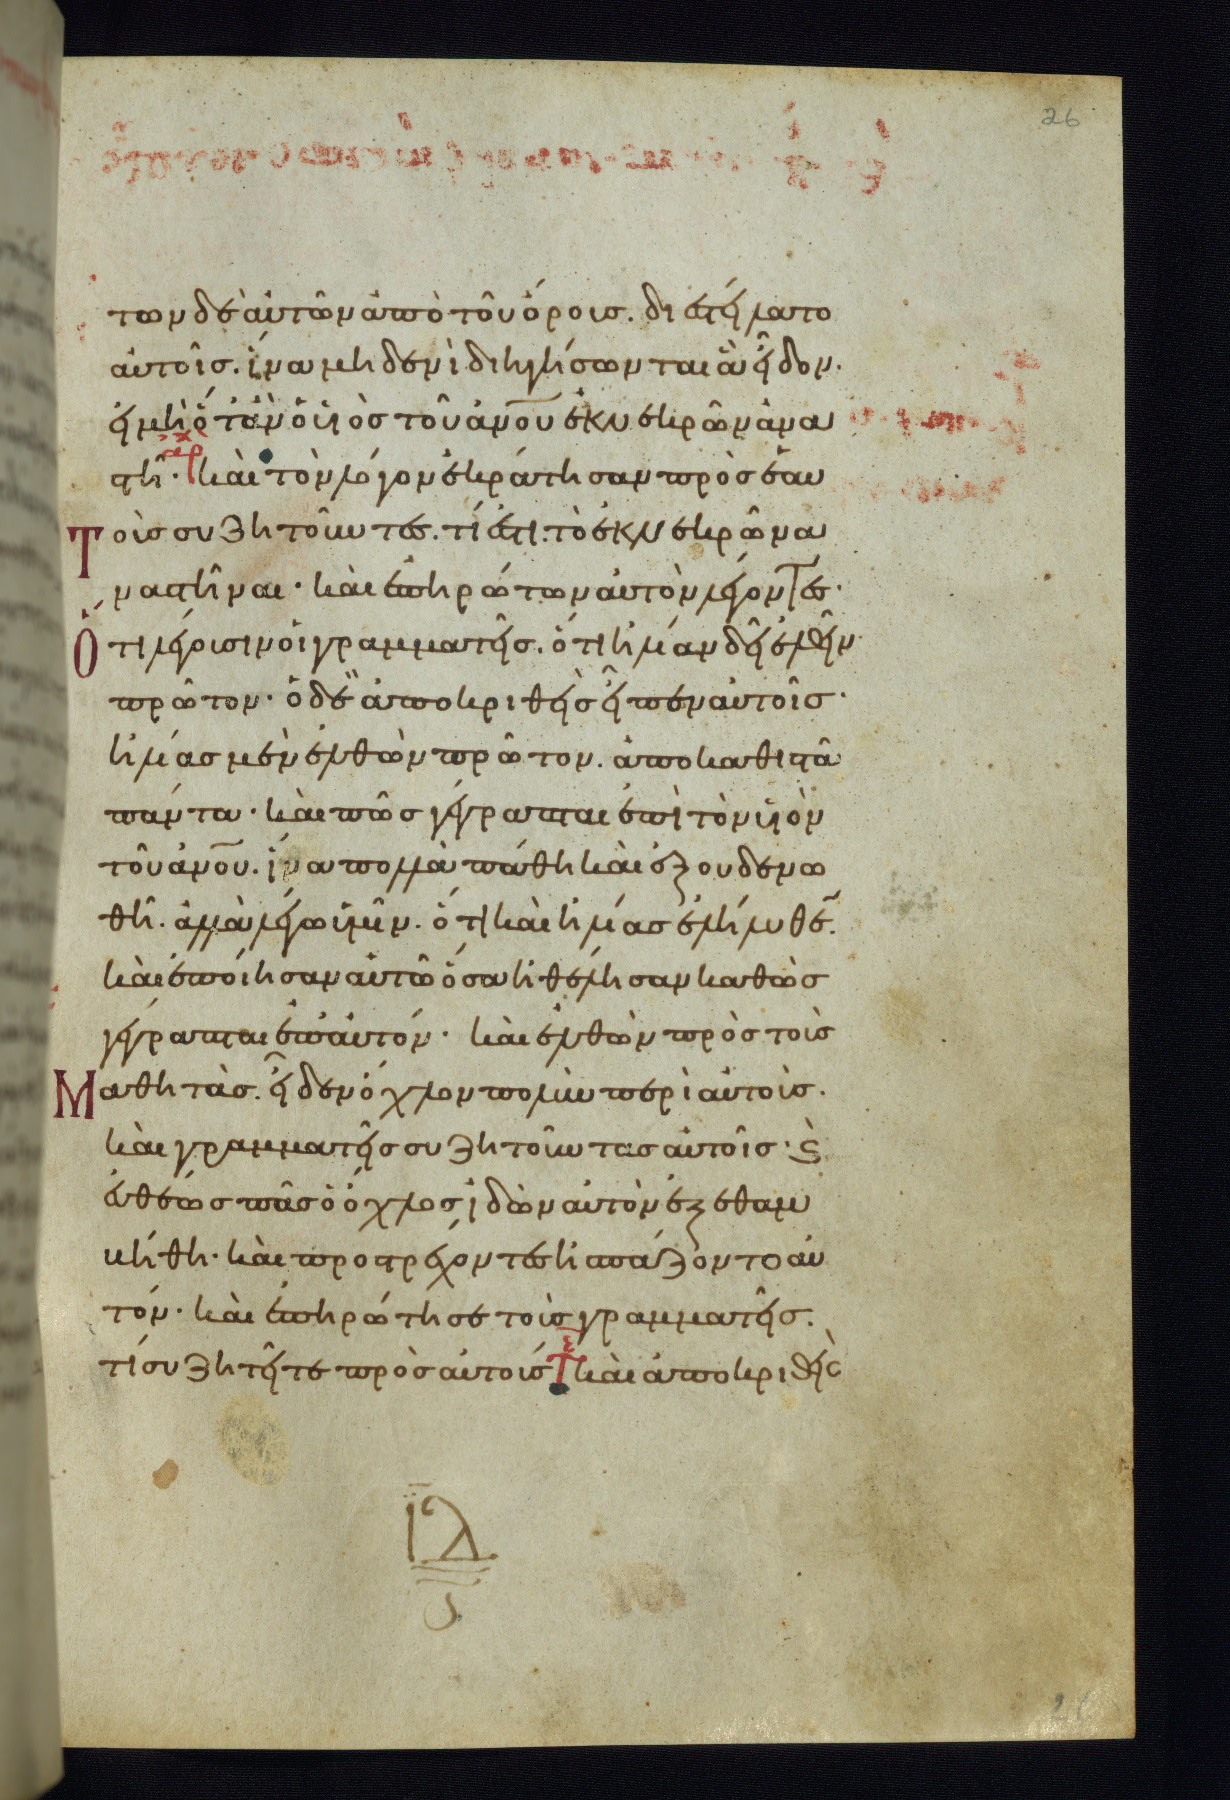 26
των δὲ αὐτῶν ἀπὸ τοῦ ὄρους. διεστείλατο
αὐτοῖς. ἵνα μηδενὶ διηγήσωνται ἃ εἶδον.
εἰ μὴ ὅταν ὁ υἱὸς τοῦ ἀνου ἐκ νεκρῶν ἀνα
στῆ· καὶ τὸν λόγον ἐκράτησαν πρὸς ἑαυ
τοὺς συζητοῦντες. τί ἐστι τὸ ἐκ νεκρῶν ἀ
ναστῆναι· καὶ ἐπηρώτων αὐτὸν λέγοντες·
ὅτι λέγουσιν οἱ γραμματεῖς. ὅτι ἠλίαν δεῖ ἐλθεῖν
πρῶτον· ὁ δὲ ἀποκριθεὶς εἶπεν αὐτοῖς·
ἠλίας μὲν ἐλθὼν πρῶτον. ἀποκαθιστᾶ
πάντα· καὶ πῶς γέγραπται ἐπὶ τὸν υἱὸν
τοῦ ἀνου. ἵνα πολλὰ πάθη καὶ ἐξουδενω
θῆ. ἀλλὰ λέγω ὑμῖν. ὅτι καὶ ἠλίας ἐλήλυθε.
καὶ ἐποίησαν αὐτῶ ὅσα ἠθέλησαν καθὼς
γέγραπται ἐπ αὐτόν· καὶ ἐλθὼν πρὸς τοὺς
Μαθητὰς. εἶδεν ὄχλον πολὺν περὶ αὐτοὺς.
καὶ γραμματεῖς συζητοῦντας αὐτοῖς· ϗ
εὐθέως πᾶς ὁ ὄχλος ἰδὼν αὐτὸν ἐξεθαμ
βήθη· καὶ προστρέχοντες ἠσπάζοντο αὐ
τόν· καὶ ἐπηρώτησε τοὺς γραμματεῖς.
τί συζητεῖτε πρὸς αὐτούς καὶ ἀποκριθεὶς